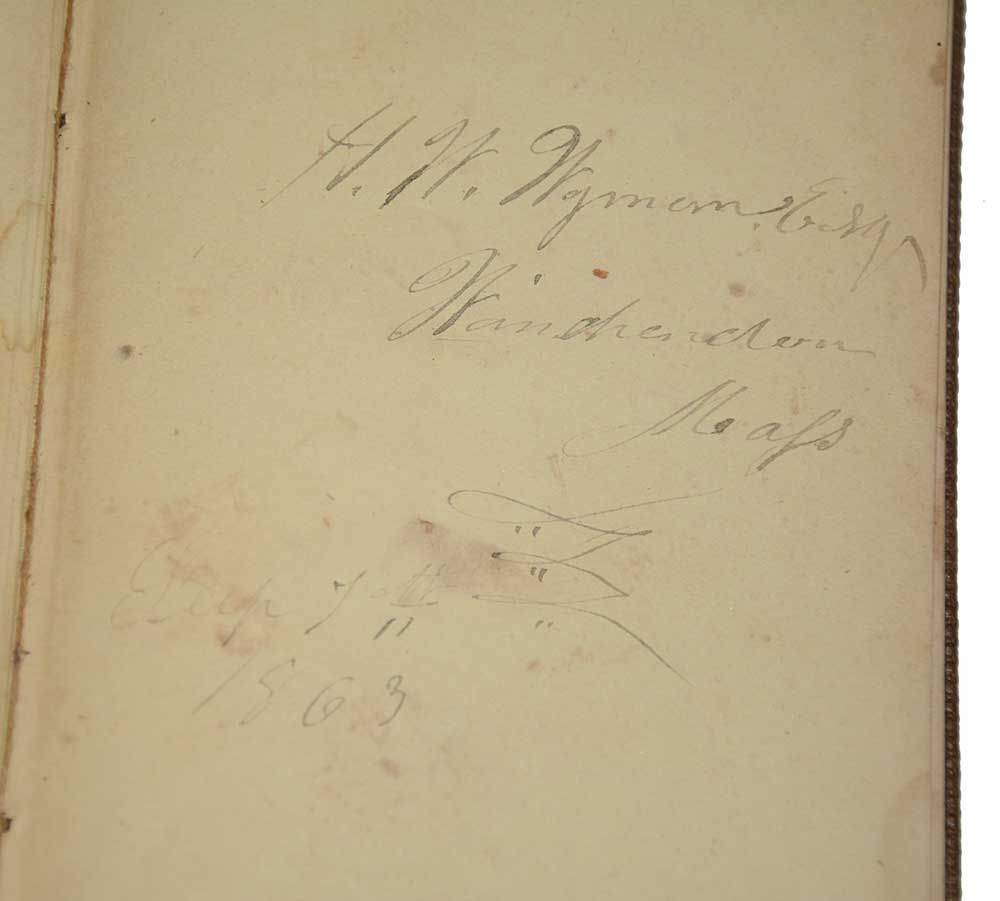 H. W. Wyman. Esq
Winchendon
Mass
Sep 7th
1863